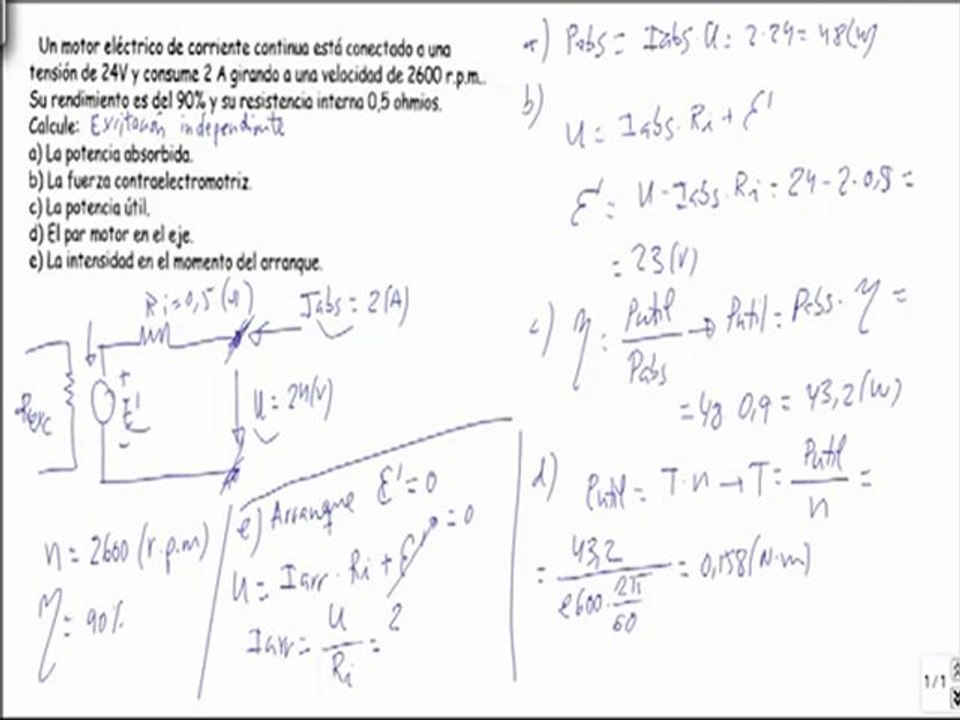 Un motor eléctrico de corriente continua está conectado a una
tensión de 24V y consume 2 A girando a una velocidad de 2600 r.p.m..
Su rendimiento es del 90% y su resistencia interna 0,5 ohmios.
Calcule: Excitación independiente
a) La potencia absorbida.
b) La fuerza contraelectromotriz
c) La potencia útil.
d) El par motor en el eje.
e) La intensidad en el momento del arranque.
Ri=0,5 (Ω)
Iabs = 2(A)
Rexc
+
E'
-
U = 24(V)
n = 2600 (r.p.m)
η = 90%
e) Arranque E'=0
U = Iarr · Ri + E' = 0
Iarr = U/Ri = 2
a) Pabs = Iabs·U = 2·24 = 48(W)
b)
U = Iabs·Ri + E'
E' = U - Iabs·Ri = 24 - 2·0,5 =
= 23(V)
c) η = Putil/Pabs → Putil = Pabs·η =
= 48 0,9 = 43,2(W)
d) Putil = T·n → T = Putil/n =
= 43,2/(2600·2π/60) = 0,158(N·m)
1/1